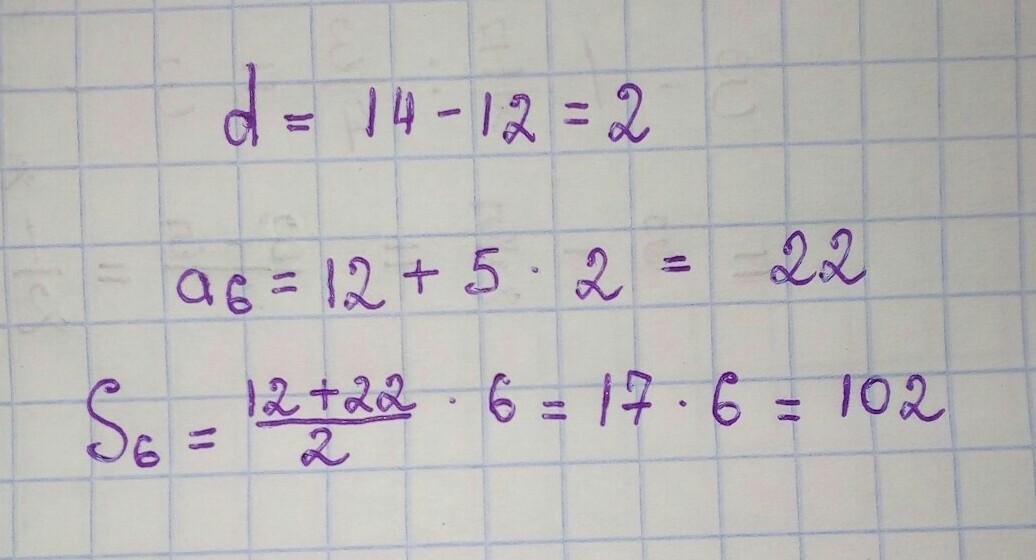 d = 14 - 12 = 2
a₆ = 12 + 5 · 2 = 22
S₆ = (12 + 22)/2 · 6 = 17 · 6 = 102